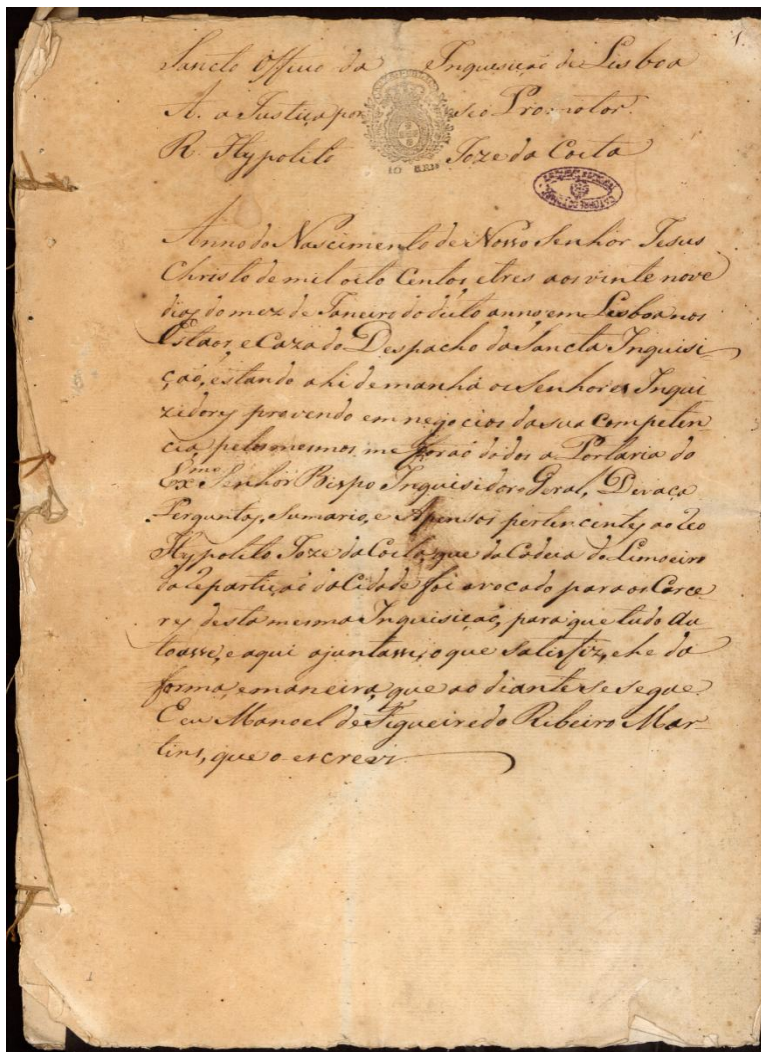 1
Sancto Officio da Inquisição de Lisboa
A. a Justiça por seo Promotor.
R. Hypolito Joze da Costa
10 REIS
Anno do Nascimento de Nosso Senhor Jesus
Christo de mil oito Centos, e tres aos vinte nove
dias do mez de Janeiro do dito anno em Lisboa nos
Estaos, e Caza do Despacho da Sancta Inquisi-
ção, estando ahi de manhã os Senhores Inqui
zidores provendo em negocios da sua Competen
cia, pelos mesmos me forão dados a Portaria do
Exmo Senhor Bispo Inquisidor Geral, Devaça
Perguntas, Sumario, e Apensos pertencentes ao Reo
Hypolito Joze da Costa, que da Cadeia do Limoeiro
da repartição da Cidade foi avocado para os Carce-
res desta mesma Inquisição, para que tudo au
toasse, e aqui ajuntasse, o que satisfiz, e he da
forma, e maneira, que ao diante se segue.
E eu Manoel de Figueiredo Ribeiro Mar-
tins, que o escrevi.